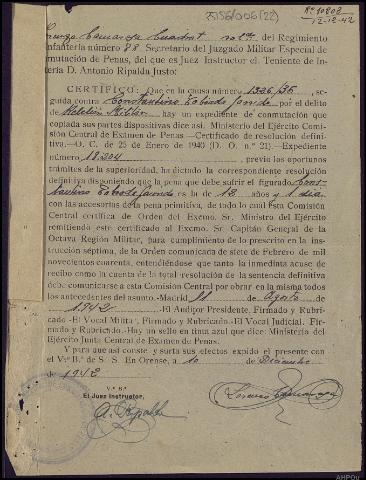 25156/006(22)
Nº 10802
12-12-42
Camarasa Cuadrat del Regimiento
Infantería número 88, Secretario del Juzgado Militar Especial de
mutación de Penas, del que es Juez Instructor el Teniente de
tería D. Antonio Ripalda Justo:
CERTIFICO: Que en la causa número 1396/36, se-
guida contra Constantino por el delito
de Rebelión Militar hay un expediente de conmutación que
copiada sus partes dispositivas dice así. Ministerio del Ejército Comi-
sión Central de Examen de Penas —Certificado de resolución defini-
tiva.—O. C. de 25 de Enero de 1940 (D. O. n.º 21).—Expediente
número 18.204, previo los oportunos
trámites de la superioridad, ha dictado la correspondiente resolución
definitiva disponiendo que la pena que debe sufrir el figurado Cons-
tantino es la de 12 años y 1 día
con las accesorias de la pena primitiva, de todo lo cual esta Comisión
Central certifica de Orden del Excmo. Sr. Ministro del Ejército
remitiendo este certificado al Excmo. Sr. Capitán General de la
Octava Región Militar, para cumplimiento de lo prescrito en la ins-
trucción séptima, de la Orden comunicada de siete de Febrero de mil
novecientos cuarenta, entendiéndose que tanto la inmediata acuse de
recibo como la cuenta de la total resolución de la sentencia definitiva
debe comunicarse a esta Comisión Central por obrar en la misma todos
los antecedentes del asunto.-Madrid 11 de Agosto de
1942 .-El Auditor Presidente, Firmado y Rubri-
cado -El Vocal Militar, Firmado y Rubricado.-El Vocal Judicial. Fir-
mado y Rubricado.-Hay un sello en tinta azul que dice: Ministerio del
Ejército Junta Central de Examen de Penas.
Y para que así conste y surta sus efectos expido el presente con
el Vº Bº de S. S. En Orense, a 10 de Diciembre
de 1942
Vº Bº
El Juez Instructor,
A. Ripalda
Lorenzo Camarasa
AHPOu